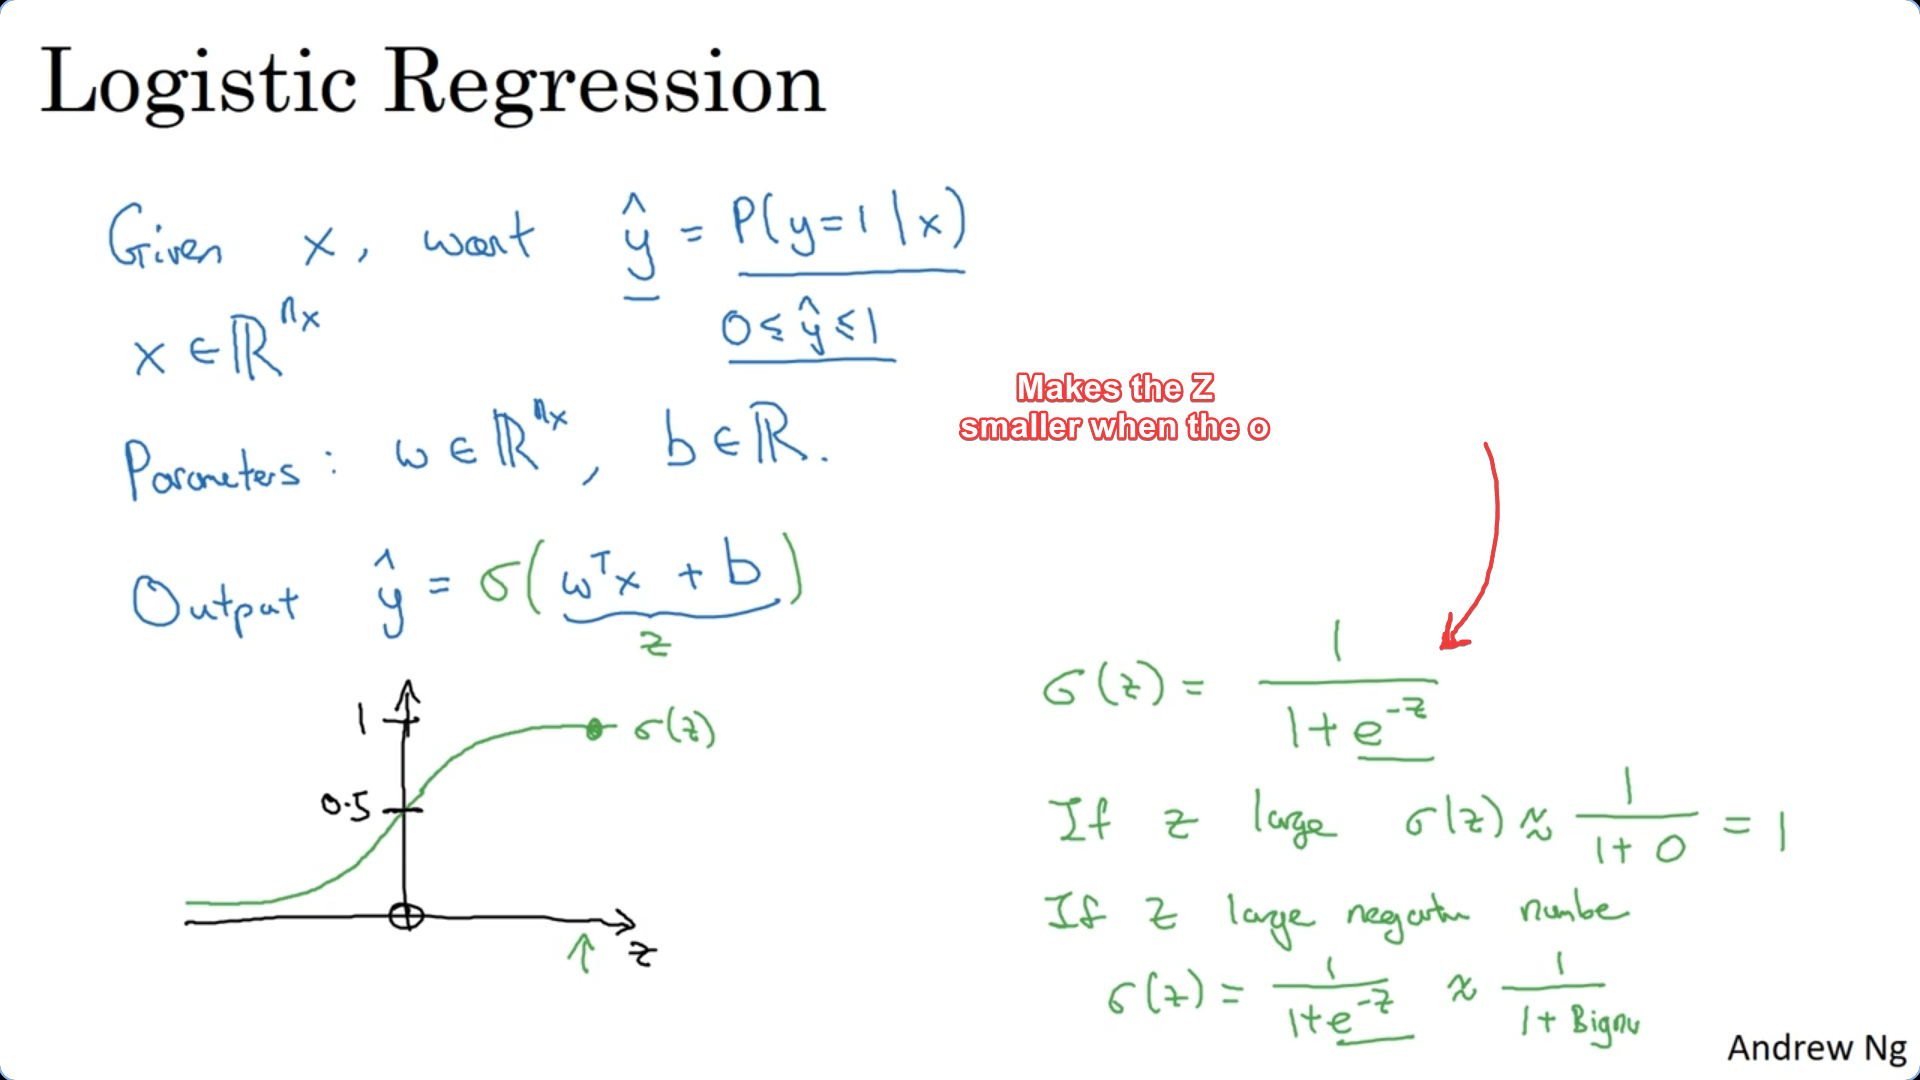 Logistic Regression
Given x, want ŷ = P(y=1|x)
x ∈ ℝⁿˣ
0 ≤ ŷ ≤ 1
Parameters: w ∈ ℝⁿˣ, b ∈ ℝ.
Output ŷ = σ(wᵀx + b)
z
1
0.5
σ(z)
z
Makes the Z
smaller when the o
σ(z) = 1/(1+e^(-z))
If z large σ(z) ≈ 1/(1+0) = 1
If z large negatin numbe
σ(z) = 1/(1+e^(-z)) ≈ 1/(1+Bignu
Andrew Ng